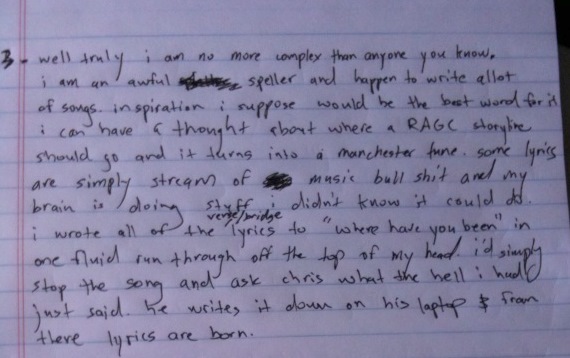 3- well truly i am no more complex than anyone you know.
i am an awful speller and happen to write allot
of songs. inspiration i suppose would be the best word for it
i can have a thought about where a RAGC storyline
should go and it turns into a manchester tune. some lyrics
are simply stream of music bull shit and my
brain is doing stuff i didn't know it could do.
verse/bridge
i wrote all of the lyrics to "where have you been" in
one fluid run through off the top of my head. i'd simply
stop the song and ask chris what the hell i had
just said. he writes it down on his laptop & from
there lyrics are born.